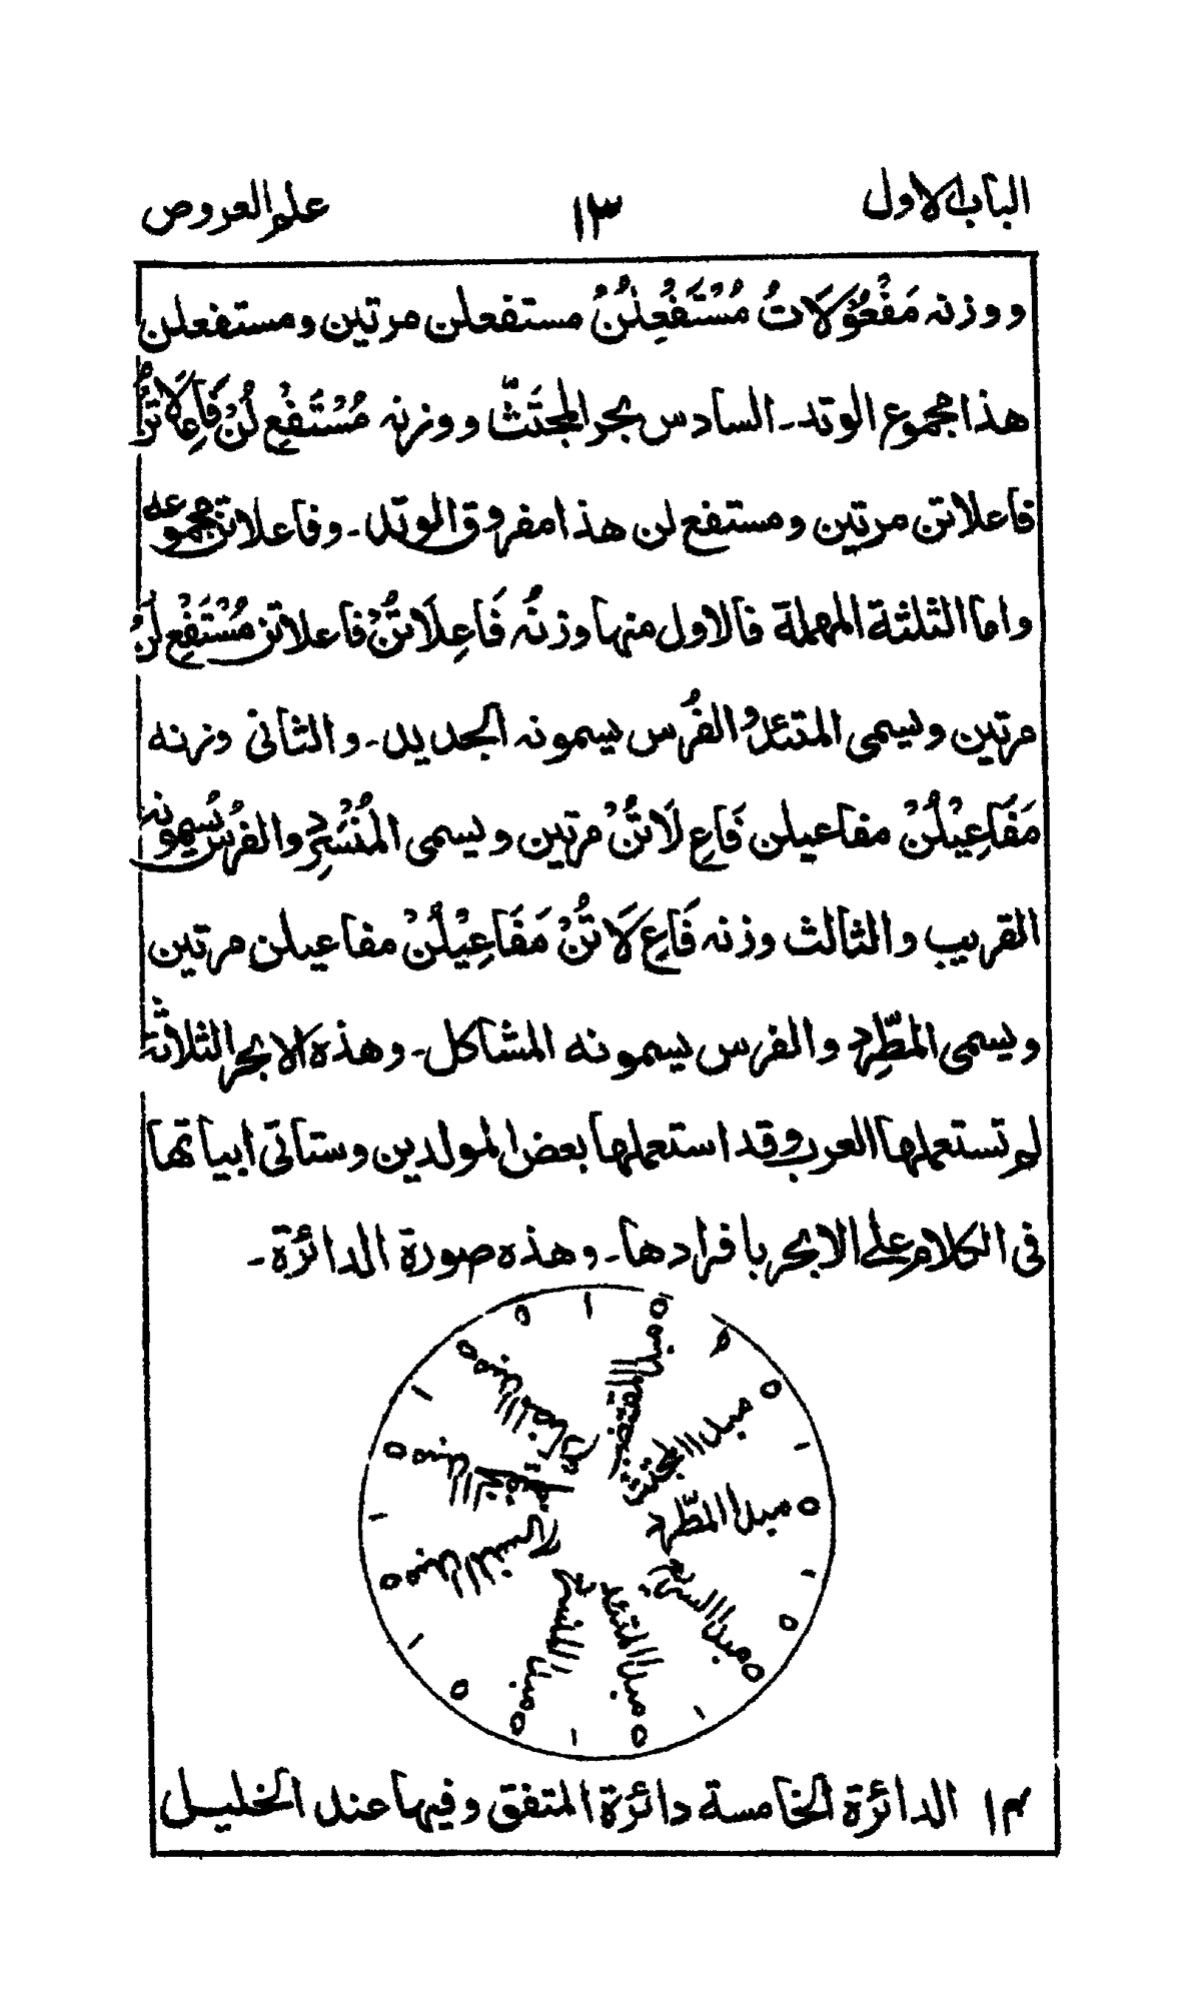 الباب الاول
١٣
علم العروض
ووزنه مَفْعُوْلَاتُ مُسْتَفْعِلُنْ مستفعلن مرتين ومستفعلن
هذا مجموع الوتد ـ السادس بحر المجتَثّ ووزنه مُسْتَفْعِ لُنْ فَاعِلَاتُنْ
فاعلاتن مرتين ومستفع لن هذا مفروق الوتد ـ وفاعلاتن مجموعه
واما الثلثة المهملة فالاول منها وزنُه فَاعِلَاتُنْ فاعلاتن مُسْتَفْعِ لُنْ
مرتين ويسمى المتئد والفُرس يسمونه الجديد ـ والثانى وزنه
مَفَاعِيْلُنْ مفاعيلن فَاعِ لَاتُنْ مرتين ويسمى المُنْسَرِد والفُرس يُسمونه
القريب والثالث وزنه فَاعِ لَاتُنْ مَفَاعِيْلُنْ مفاعيلن مرتين
ويسمى المطَّرِد والفرس يسمونه المشاكل ـ وهذه الابحر الثلاثة
لم تستعملها العرب وقد استعملها بعض المولدين وستاتى ابياتها
فى الكلام على الابحر بافرادها ـ وهذه صورة الدائرة ـ
مبدا المقتضب
مبدا المجتث
مبدا المطّرد
مبدا السريع
مبدا المتئد
مبدا المنسرح
مبدا الخفيف
مبدا المضارع
١٣ الدائرة الخامسة دائرة المتفق وفيها عند الخليل